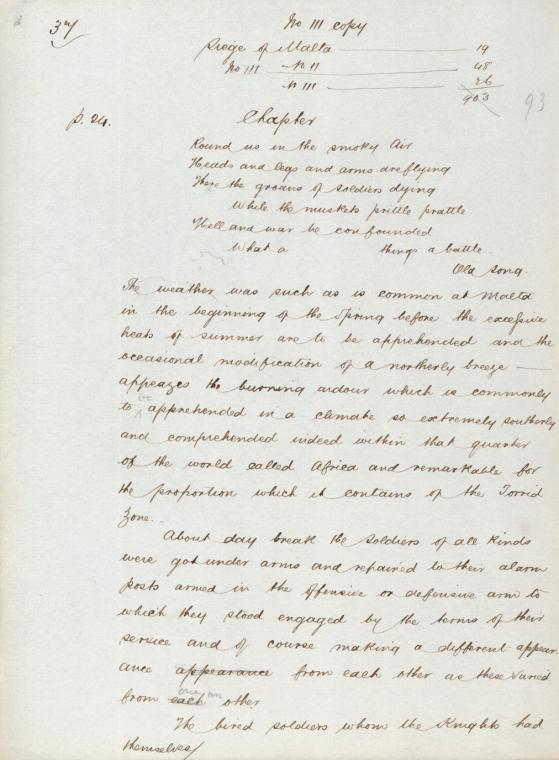 3rd
No III copy
Siege of Malta 19
No III No II 48
N III 26
903 93
p. 24. Chapter
Round us in the smoky Air
Heads and legs and arms are flying
There the groans of soldiers dying
While the muskets prittle prattle
Hell and war be confounded
What a things a battle.
Old song.
The weather was such as is common at Malta
in the beginning of the Spring before the excessive
heats of summer are to be apprehended and the
occasional modification of a northerly breeze —
appeazes the burning ardour which is commonly
to be apprehended in a climate so extremely southerly
and comprehended indeed within that quarter
of the world called Africa and remarkable for
the proportion which it contains of the Torrid
Zone.
About day break the Soldiers of all kinds
were got under arms and repaired to their alarm
posts armed in the offensive or defensive arm to
which they stood engaged by the terms of their
service and of course making a different appear-
ance appearance from each other as these varied
from each other
The hired soldiers whom the Knights had
themselves/